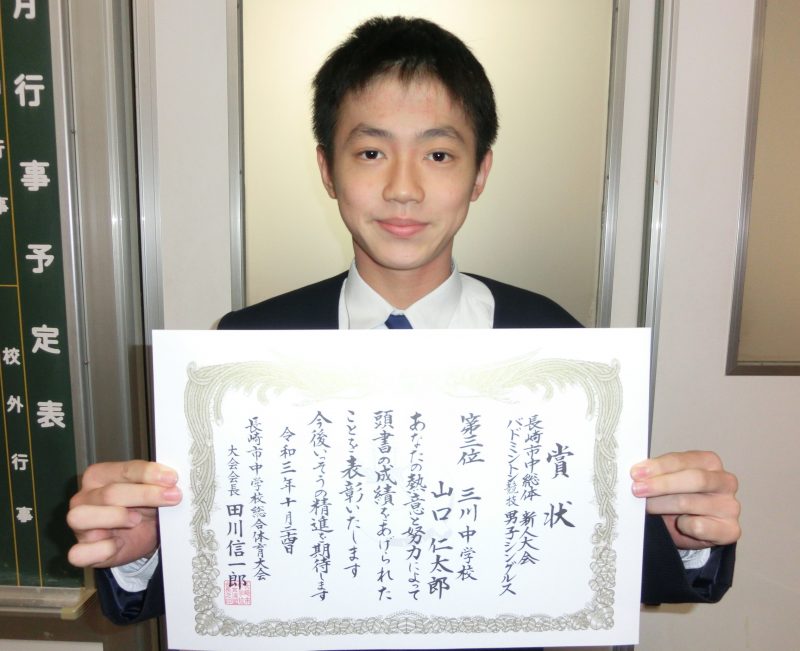 月行事予定表
行事
校外行事
賞状
長崎市中総体 新人大会
バドミントン競技 男子シングルス
第三位 三川中学校
山口 仁太郎
あなたの熱意と努力によって
頭書の成績をあげられた
ことを表彰いたします
今後いっそうの精進を期待します
令和三年十月二十四日
長崎市中学校総合体育大会
大会会長 田川信一郎